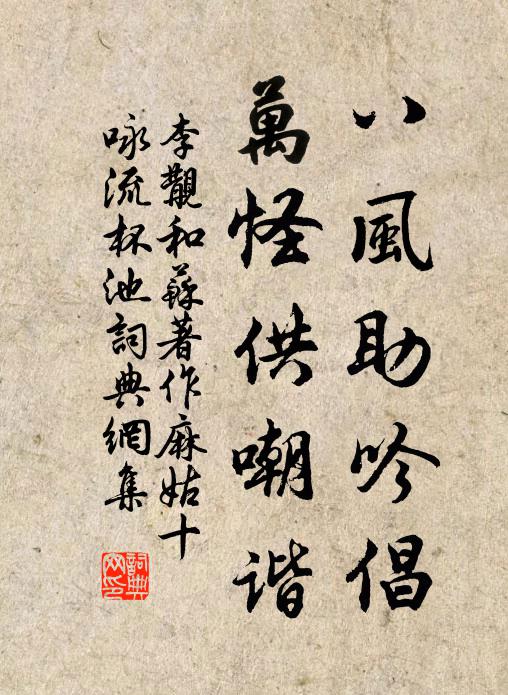 八風助吟倡
萬怪供嘲谐
李覯和蘇著作麻姑十
咏流杯池詞典網集
詞典
网印